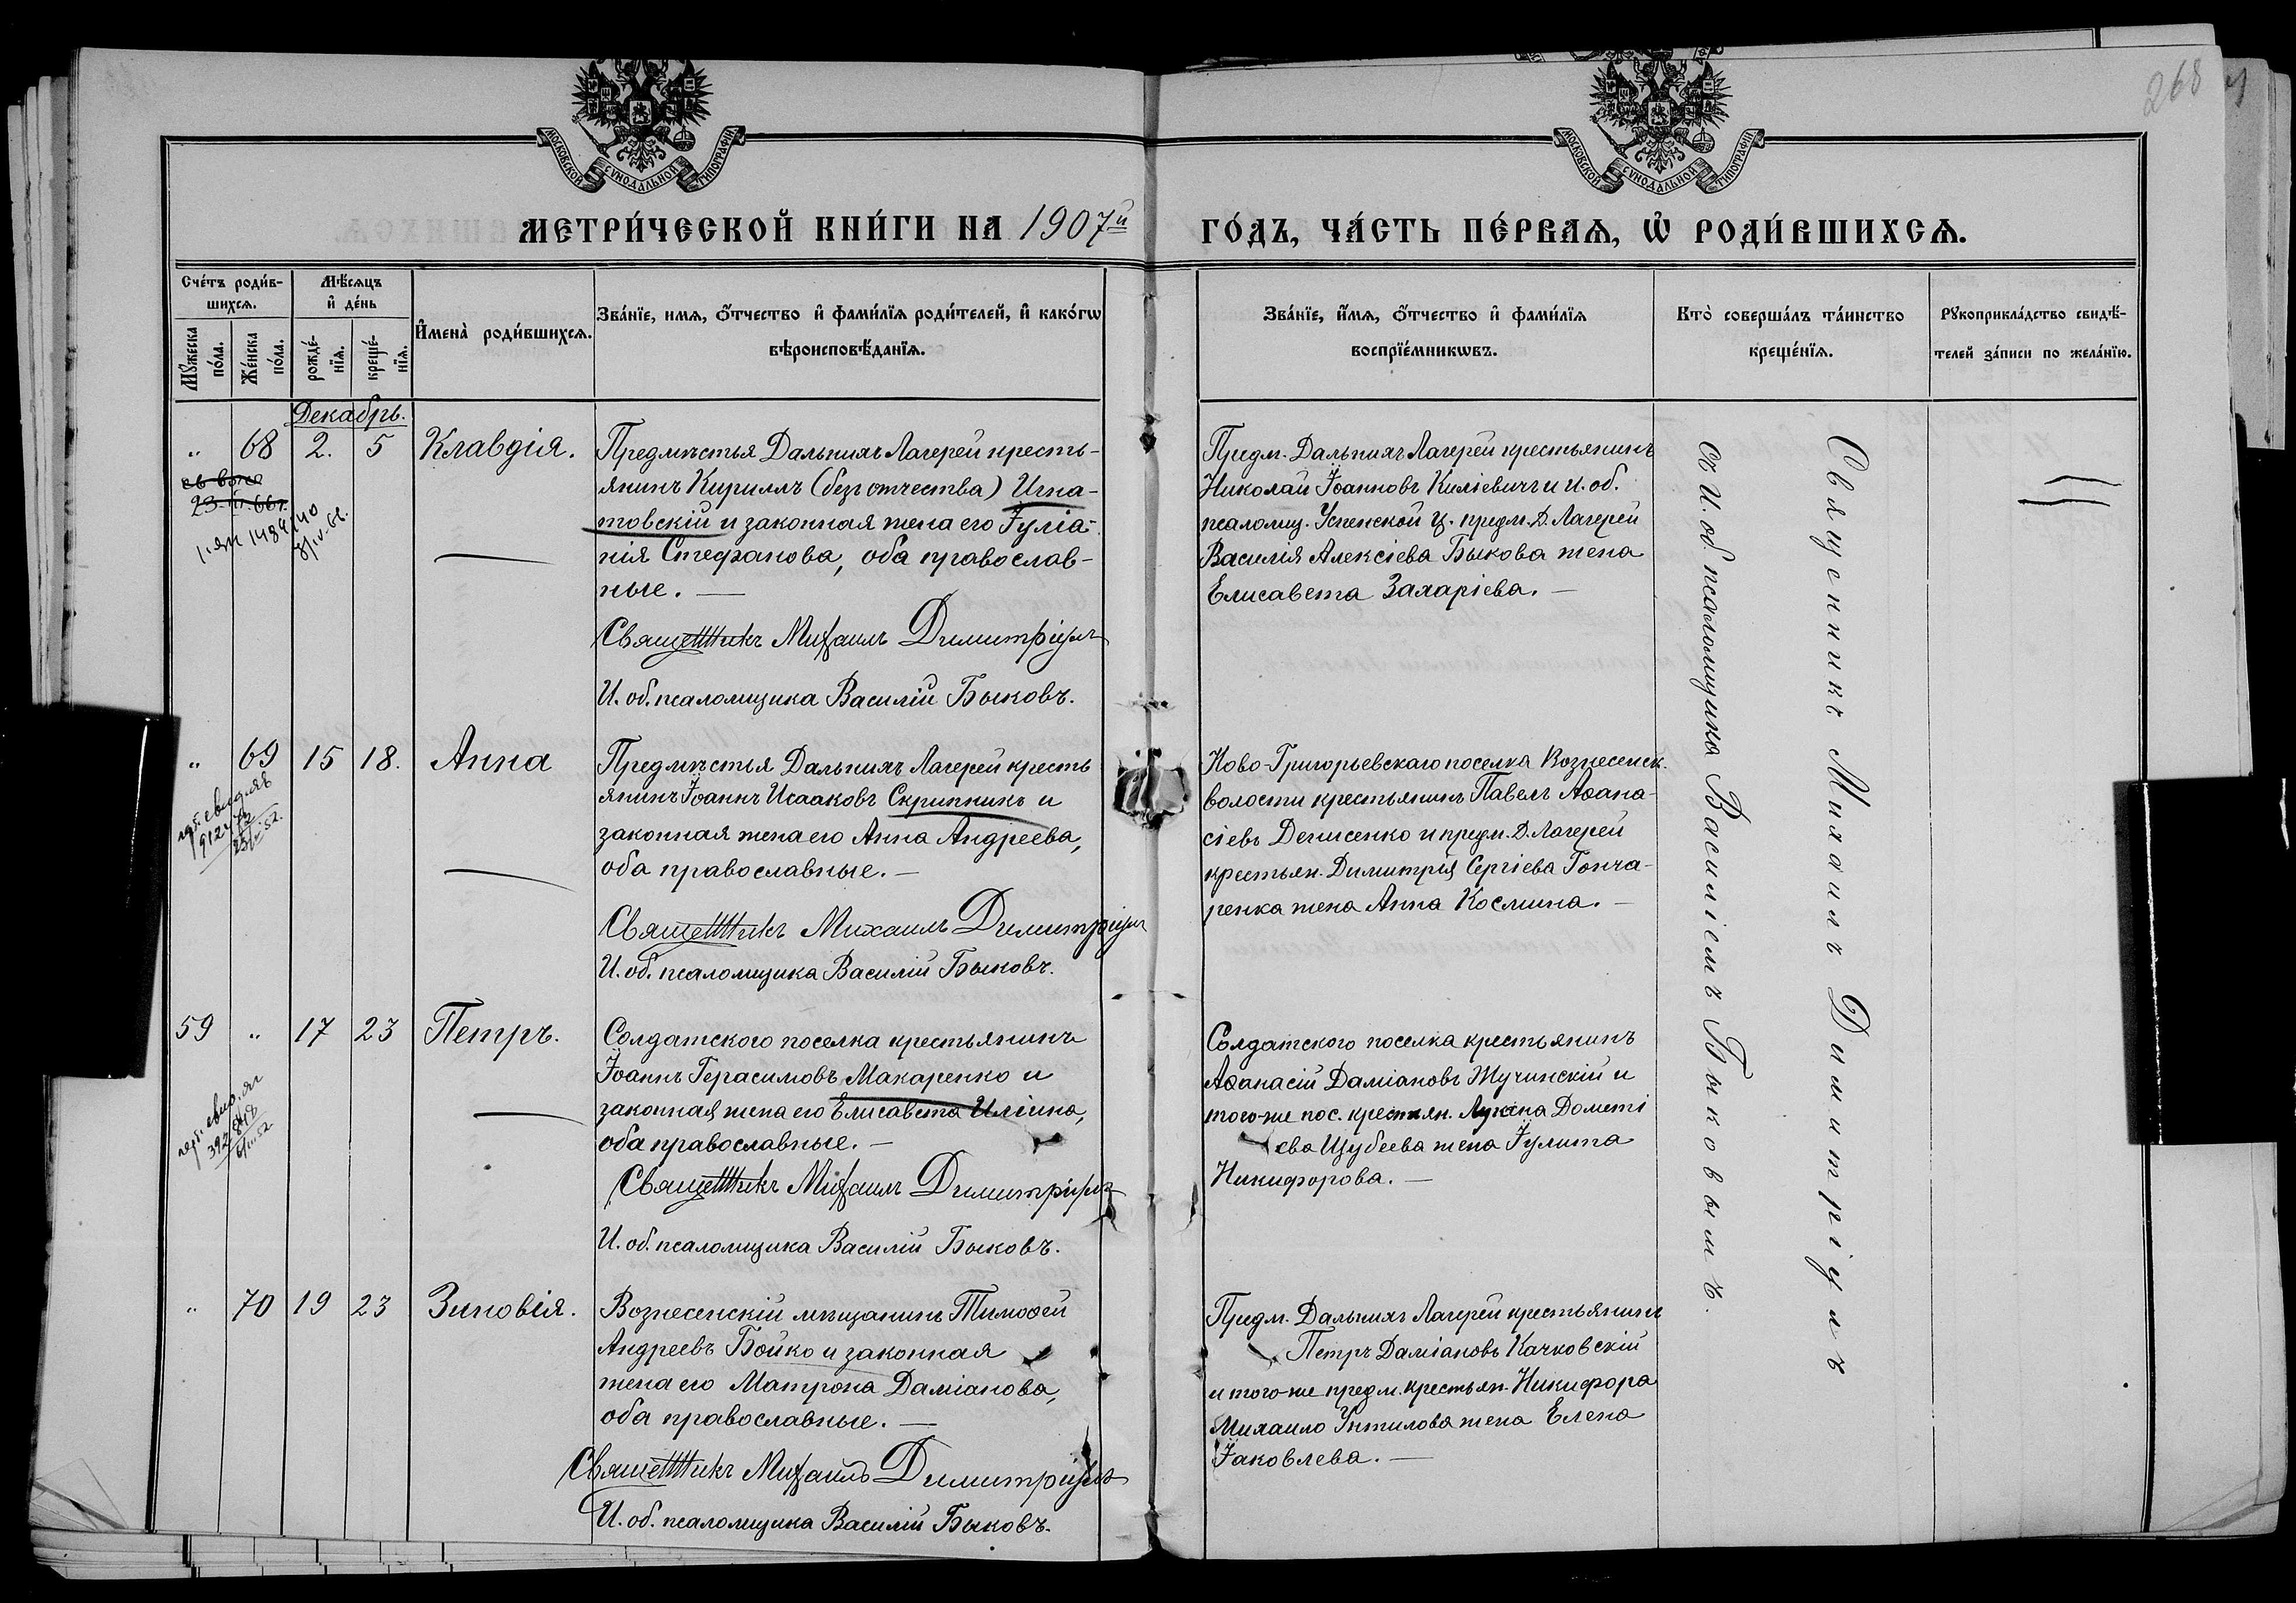 268
МОСКОВСКОЙ СѴНОДАЛЬНОЙ ТИПОГРАФІИ
МОСКОВСКОЙ СѴНОДАЛЬНОЙ ТИПОГРАФІИ
МЕТРИ́ЧЕСКОЙ КНИ́ГИ НА 1907й
ГО́ДЪ, ЧА́СТЬ ПЕ́РВАѦ, Ѽ РОДИ́ВШИХСѦ.
Сче́тъ роди́в-
шихсѧ.
Мꙋ́жеска
по́ла.
Же́нска
по́ла.
Мѣ́сѧцъ
и҆ де́нь
рожде́-
нїѧ.
креще́-
нїѧ.
И҆мена̀ роди́вшихсѧ.
Зва́нїе, имѧ, ѻ҆́тчество и҆ фами́лїѧ роди́телей, и҆ како́гѡ
вѣроисповѣ́данїѧ.
Зва́нїе, и҆́мѧ, ѻ҆́тчество и҆ фами́лїѧ
воспрїе́мникѡвъ.
Кто̀ соверша́лъ та́инство
креще́нїѧ.
Рꙋкоприкла́дство свидѣ́-
телей за́писи по жела́нїю.
Декабрь.
„ 68 2. 5 Клавдія.
Предмѣстья Дальнихъ Лагерей кресть-
янинъ Кириллъ (безъ отчества) Игна-
товскій и законная жена его Іуліа-
нія Стефанова, оба православ-
ные. —
Священникъ Михаилъ Димитріумъ
И. об. псаломщика Василій Быковъ.
Предм. Дальнихъ Лагерей крестьянинъ
Николай Іоанновъ Киліевичъ и и. об.
псаломщ. Успенской ц. предм. Д. Лагерей
Василія Алексіева Быкова жена
Елисавета Захаріева. —
„ 69 15 18. Анна
Предмѣстья Дальнихъ Лагерей кресть
янинъ Іоаннъ Исааковъ Скрипникъ и
законная жена его Анна Андреева,
оба православные. —
Священникъ Михаилъ Димитріумъ
И. об. псаломщика Василій Быковъ.
Ново-Григорьевскаго поселка Вознесенск.
волости крестьянинъ Павелъ Аѳана-
сіевъ Денисенко и предм. Д. Лагерей
крестьян. Димитрія Сергіева Гонча-
ренка жена Анна Космина. —
59 „ 17 23 Петръ.
Солдатского поселка крестьянинъ
Іоаннъ Герасимовъ Макаренко и
законная жена его Елисавета Иліина,
оба православные. —
Священникъ Михаилъ Димитріумъ
И. об. псаломщика Василій Быковъ.
Солдатского поселка крестьянинъ
Аѳанасій Даміановъ Жучинскій и
того-же пос. крестьян. Дометі
ева Щубеева жена Іулита
Никифорова. —
„ 70 19 23 Зиновія.
Вознесенскій мѣщанинъ Тимоѳей
Андреевъ Бойко и законная
жена его Матрона Даміанова,
оба православные. —
Священникъ Михаилъ Димитріумъ
И. об. псаломщика Василій Быковъ.
Предм. Дальнихъ Лагерей крестьянинъ
Петръ Даміановъ Качковскій
и того-же предм. крестьян. Никифора
Михаило Унтилова жена Елена
Іаковлева. —
Священникъ Михаилъ Димитріумъ
съ И. об. псаломщика Василіемъ Быковымъ.